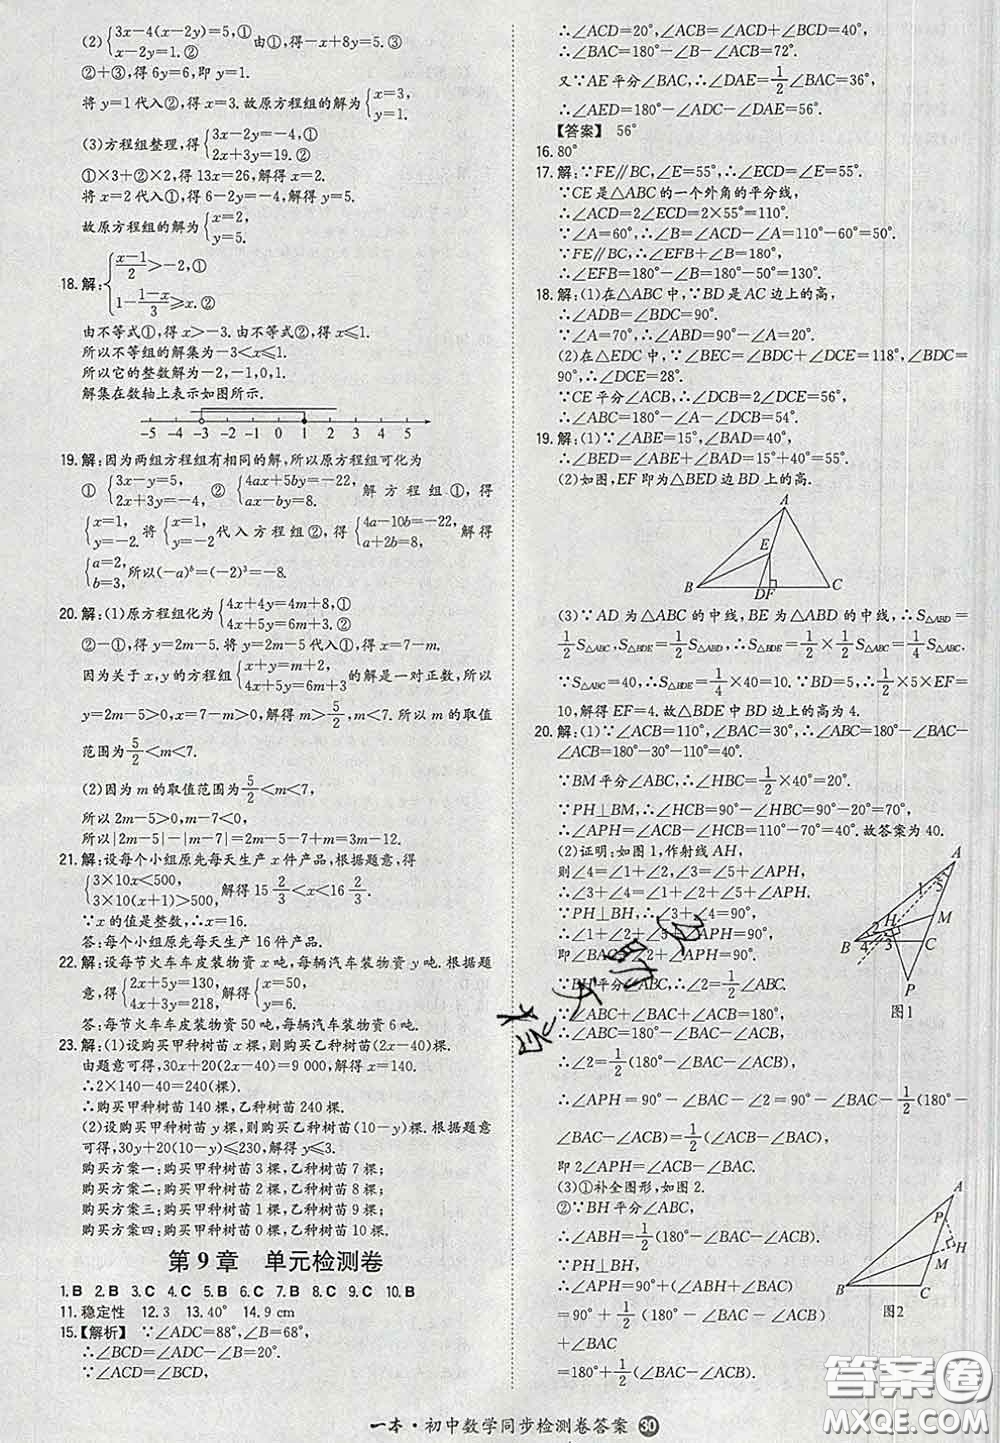 (2){3x-4(x-2y)=5,① x-2y=1.② 由①,得-x+8y=5.③
②+③,得6y=6,即y=1.
将y=1代入②,得x=3.故原方程组的解为{x=3, y=1.
(3)方程组整理,得{3x-2y=-4,① 2x+3y=19.②
①×3+②×2,得13x=26,解得x=2.
将x=2代入①,得6-2y=-4,解得y=5.
故原方程组的解为{x=2, y=5.
18.解:{(x-1)/2>-2,① 1-(1-x)/3≥x.②
由不等式①,得x>-3.由不等式②,得x≤1.
所以不等式组的解集为-3<x≤1.
所以它的整数解为-2,-1,0,1.
解集在数轴上表示如图所示.
-5 -4 -3 -2 -1 0 1 2 3 4 5
19.解:因为两组方程组有相同的解,所以原方程组可化为
①{3x-y=5, 2x+3y=-4, ②{4ax+5by=-22, ax-by=8, 解方程组①,得
{x=1, y=-2. 将{x=1, y=-2代入方程组②,得{4a-10b=-22, a+2b=8, 解得
{a=2, b=3,所以(-a)ᵇ=(-2)³=-8.
20.解:(1)原方程组化为{4x+4y=4m+8,① 4x+5y=6m+3.②
②-①,得y=2m-5.将y=2m-5代入①,得x=7-m.
因为关于x,y的方程组{x+y=m+2, 4x+5y=6m+3的解是一对正数,所以
y=2m-5>0,x=7-m>0,解得m>5/2,m<7.所以m的取值
范围为5/2<m<7.
(2)因为m的取值范围为5/2<m<7,
所以2m-5>0,m-7<0,
所以|2m-5|-|m-7|=2m-5-7+m=3m-12.
21.解:设每个小组原先每天生产x件产品,根据题意,得
{3×10x<500, 3×10(x+1)>500,解得15 2/3<x<16 2/3.
∵x的值是整数,∴x=16.
答:每个小组原先每天生产16件产品.
22.解:设每节火车车皮装物资x吨,每辆汽车装物资y吨.根据题
意,得{2x+5y=130, 4x+3y=218,解得{x=50, y=6.
答:每节火车车皮装物资50吨,每辆汽车装物资6吨.
23.解:(1)设购买甲种树苗x棵,则购买乙种树苗(2x-40)棵.
由题意可得,30x+20(2x-40)=9 000,解得x=140.
∴2×140-40=240(棵).
∴购买甲种树苗140棵,乙种树苗240棵.
(2)设购买甲种树苗y棵,则购买乙种树苗(10-y)棵.根据题意
可得,30y+20(10-y)≤230,解得y≤3.
购买方案一:购买甲种树苗3棵,乙种树苗7棵;
购买方案二:购买甲种树苗2棵,乙种树苗8棵;
购买方案三:购买甲种树苗1棵,乙种树苗9棵;
购买方案四:购买甲种树苗0棵,乙种树苗10棵.
第9章 单元检测卷
1.B 2.B 3.C 4.C 5.B 6.C 7.B 8.C 9.C 10.B
11.稳定性 12.3 13.40° 14.9 cm
15.【解析】 ∵∠ADC=88°,∠B=68°,
∴∠BCD=∠ADC-∠B=20°.
∵∠ACD=∠BCD,
∴∠ACD=20°,∴∠ACB=∠ACD+∠BCD=40°.
∴∠BAC=180°-∠B-∠ACB=72°.
又∵AE平分∠BAC,∴∠DAE=1/2∠BAC=36°,
∴∠AED=180°-∠ADC-∠DAE=56°.
【答案】 56°
16.80°
17.解:∵FE∥BC,∠E=55°,∴∠ECD=∠E=55°.
∵CE是△ABC的一个外角的平分线,
∴∠ACD=2∠ECD=2×55°=110°.
∵∠A=60°,∴∠B=∠ACD-∠A=110°-60°=50°.
∵FE∥BC,∴∠EFB+∠B=180°,
∴∠EFB=180°-∠B=180°-50°=130°.
18.解:(1)在△ABC中,∵BD是AC边上的高,
∴∠ADB=∠BDC=90°.
∵∠A=70°,∴∠ABD=90°-∠A=20°.
(2)在△EDC中,∵∠BEC=∠BDC+∠DCE=118°,∠BDC=
90°,∴∠DCE=28°.
∵CE平分∠ACB,∴∠DCB=2∠DCE=56°,
∴∠ABC=180°-∠A-∠DCB=54°.
19.解:(1)∵∠ABE=15°,∠BAD=40°,
∴∠BED=∠ABE+∠BAD=15°+40°=55°.
(2)如图,EF即为△BED边BD上的高.
A
E
B DF C
(3)∵AD为△ABC的中线,BE为△ABD的中线,∴S△ABD=
1/2S△ABC,S△BDE=1/2S△ABD,∴S△BDE=1/2×1/2S△ABC=1/4S△ABC.
∵S△ABC=40,∴S△BDE=1/4×40=10.∵BD=5,∴1/2×5×EF=
10,解得EF=4.故△BDE中BD边上的高为4.
20.解:(1)∵∠ACB=110°,∠BAC=30°,∴∠ABC=180°-∠BAC-
∠ACB=180°-30°-110°=40°.
∵BM平分∠ABC,∴∠HBC=1/2×40°=20°.
∵PH⊥BM,∴∠HCB=90°-∠HBC=90°-20°=70°,
∴∠APH=∠ACB-∠HCB=110°-70°=40°.故答案为40.
(2)证明:如图1,作射线AH,
则∠4=∠1+∠2,∠3=∠5+∠APH,
∴∠3+∠4=∠1+∠2+∠5+∠APH.
∵PH⊥BH,∴∠3+∠4=90°,
∴∠1+∠2+∠5+∠APH=90°.
∵BH平分∠ABC,∴∠2=1/2∠ABC.
∵∠ABC+∠BAC+∠ABC=180°,
∴∠ABC=180°-∠BAC-∠ACB,
∴∠2=1/2(180°-∠BAC-∠ACB),
∴∠APH=90°-∠BAC-∠2=90°-∠BAC-1/2(180°-
∠BAC-∠ACB)=1/2(∠ACB-∠BAC),
即2∠APH=∠ACB-∠BAC.
A 1 5 H M B 2 4 3 C P
图1
(3)①补全图形,如图2.
②∵BH平分∠ABC,
∴∠ABH=1/2∠ABC,
∴∠ABH=1/2(180°-∠BAC-∠ACB),
∴∠APH=90°+(∠ABH+∠BAC)
=90°+1/2(180°-∠BAC-∠ACB)
+∠BAC
=180°+1/2(∠BAC-∠ACB).
A P H M B C
图2
一本·初中数学同步检测卷答案 30
答案圈
MXQE.COM